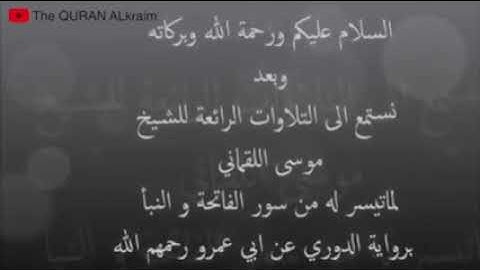 The QURAN ALkraim
السلام عليكم ورحمة الله وبركاته
وبعد
نستمع الى التلاوات الرائعة للشيخ
موسى اللقماني
لماتيسر له من سور الفاتحة و النبأ
برواية الدوري عن ابي عمرو رحمهم الله